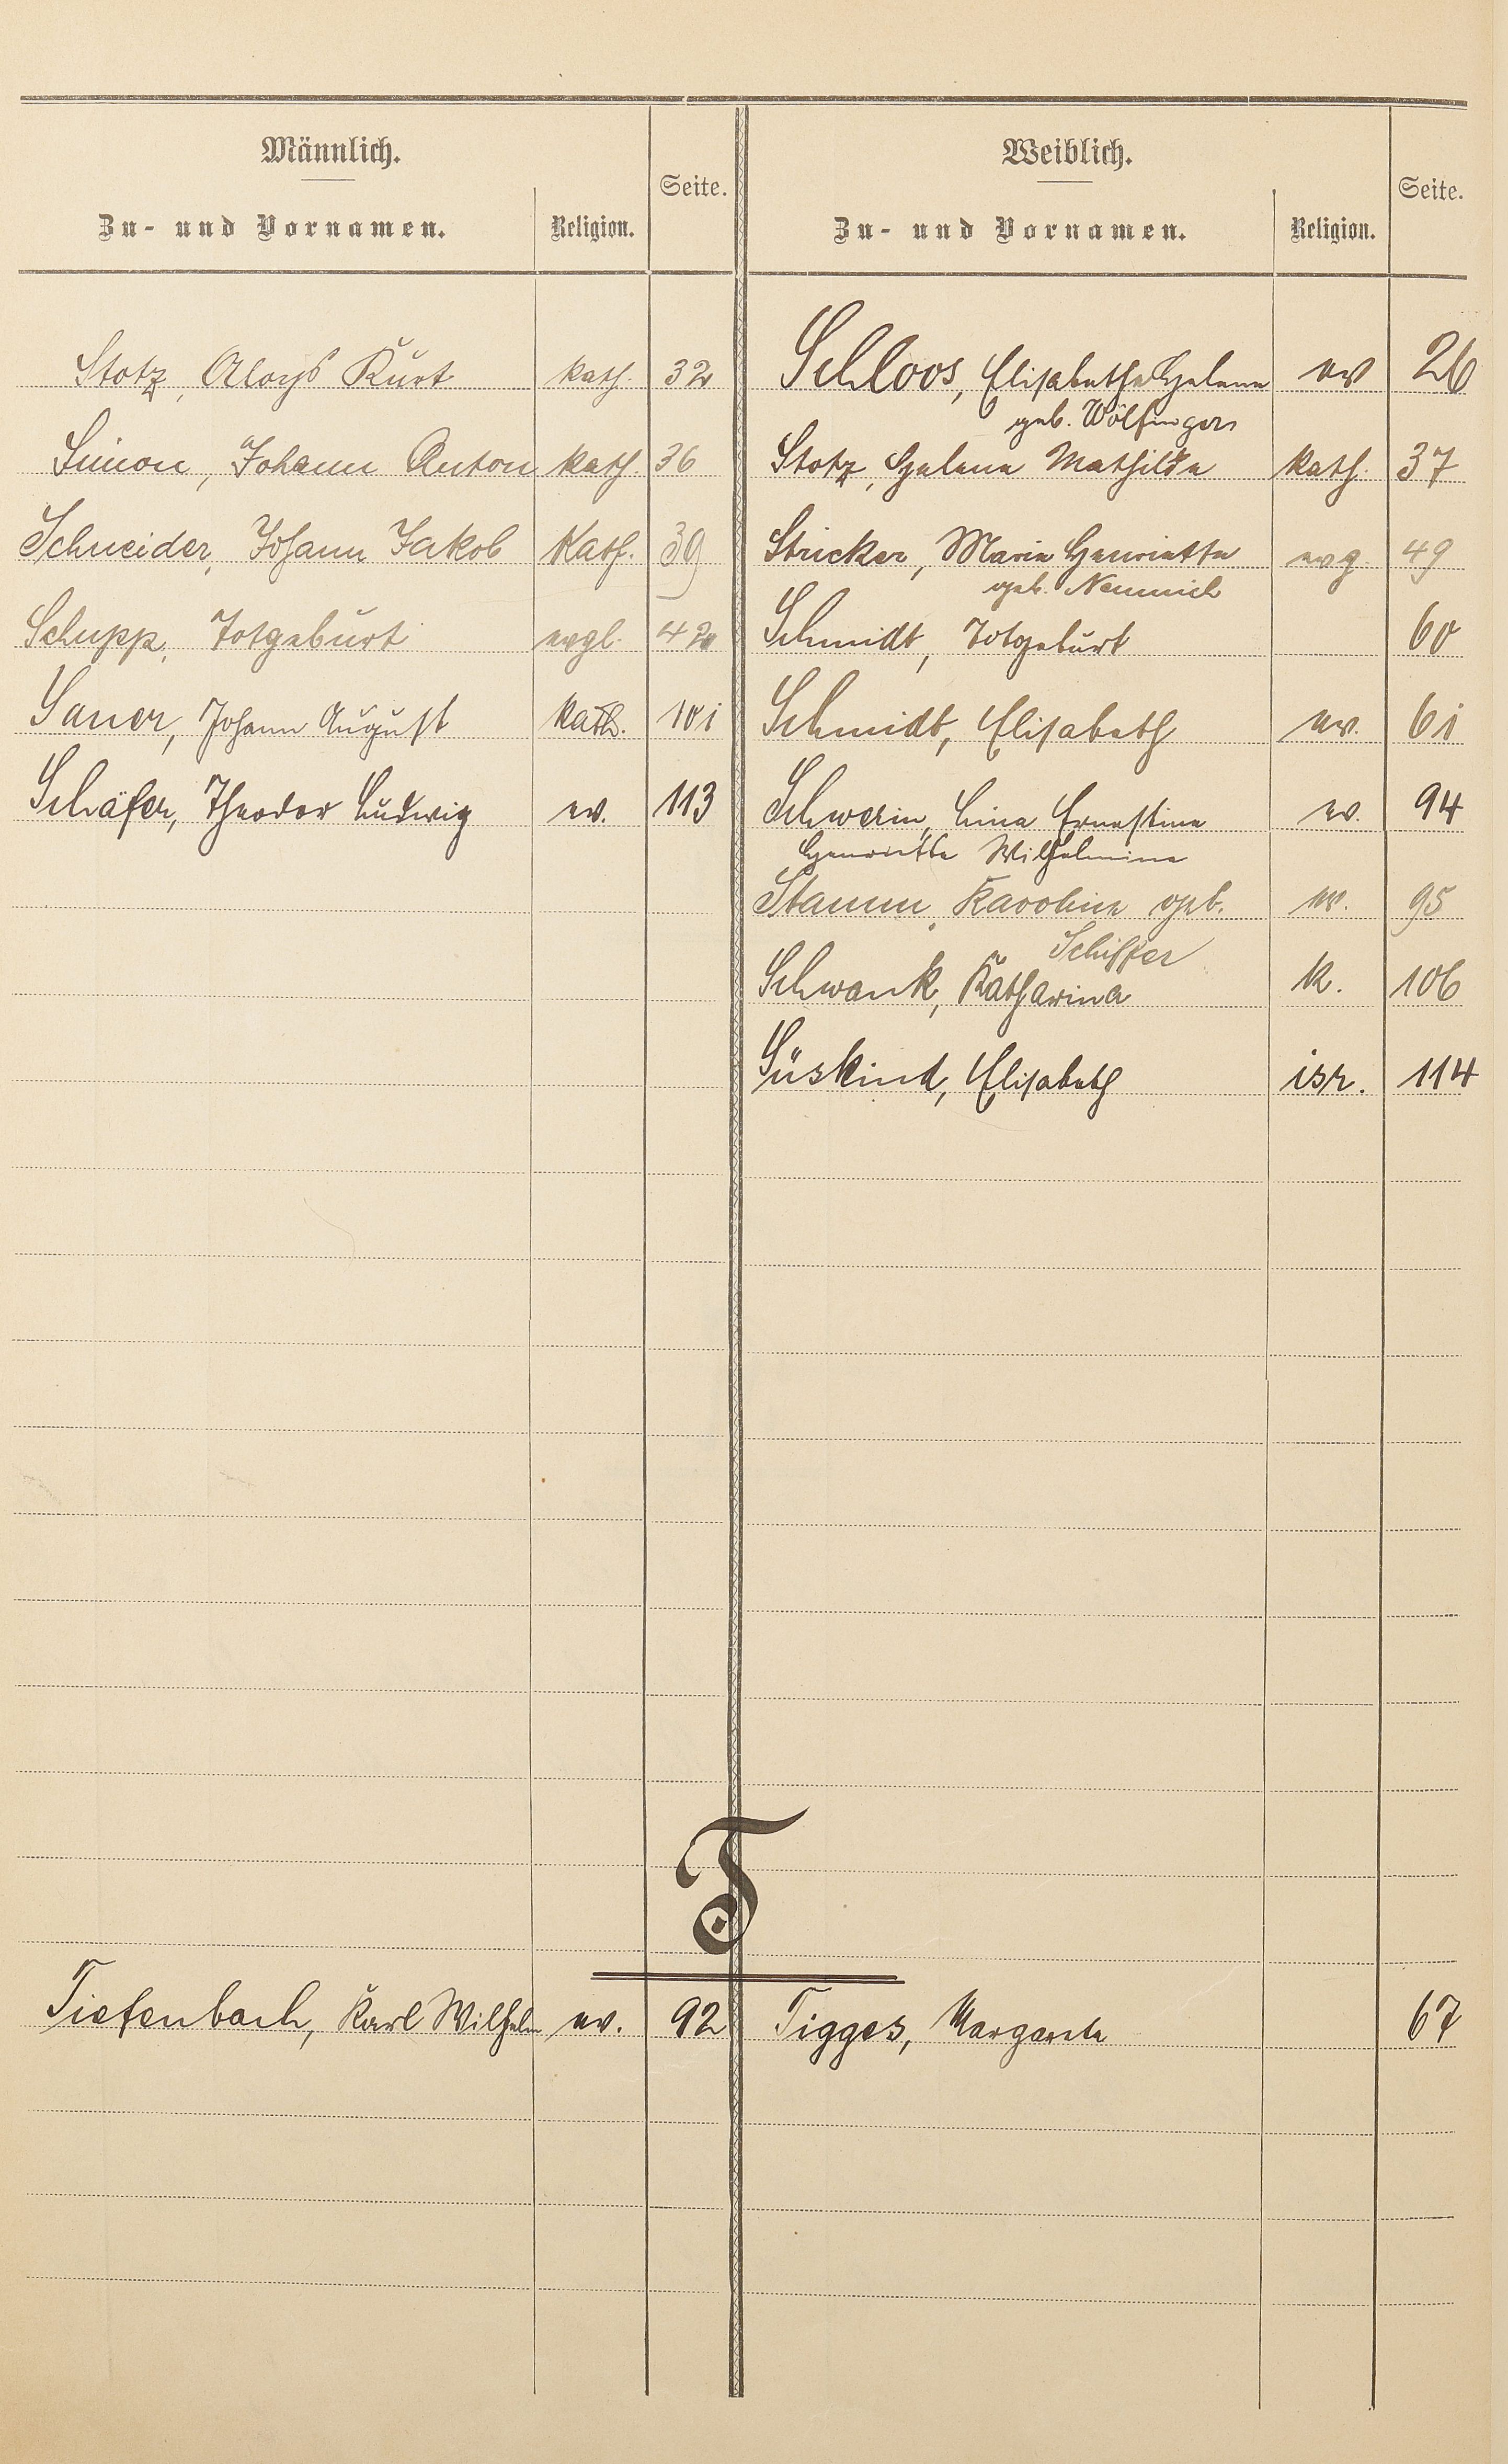 Männlich.
Zu- und Vornamen. Religion. Seite.
Stotz, Aloys Kurt kath. 32
Simon, Johann Anton kath. 36
Schneider, Johann Jakob Kath. 39
Schupp, Totgeburt evgl. 42
Sauer, Johann August kath. 101
Schäfer, Theodor Ludwig ev. 113
Weiblich.
Zu- und Vornamen. Religion. Seite.
Schloos, Elisabethe Helene ev 26
geb. Wölfinger
Stotz, Helene Mathilde kath. 37
Stricker, Marie Henriette evg. 49
geb. Nemnich
Schmidt, Totgeburt 60
Schmidt, Elisabeth ev. 61
Schwerin, Lina Ernestine ev. 94
Henriette Wilhelmine
Stamm, Karoline geb. ev. 95
Schiffer
Schwank, Katharina k. 106
Süskind, Elisabeth isr. 114
T
Tiefenbach, Karl Wilhelm ev. 92
Tigges, Margareta 67